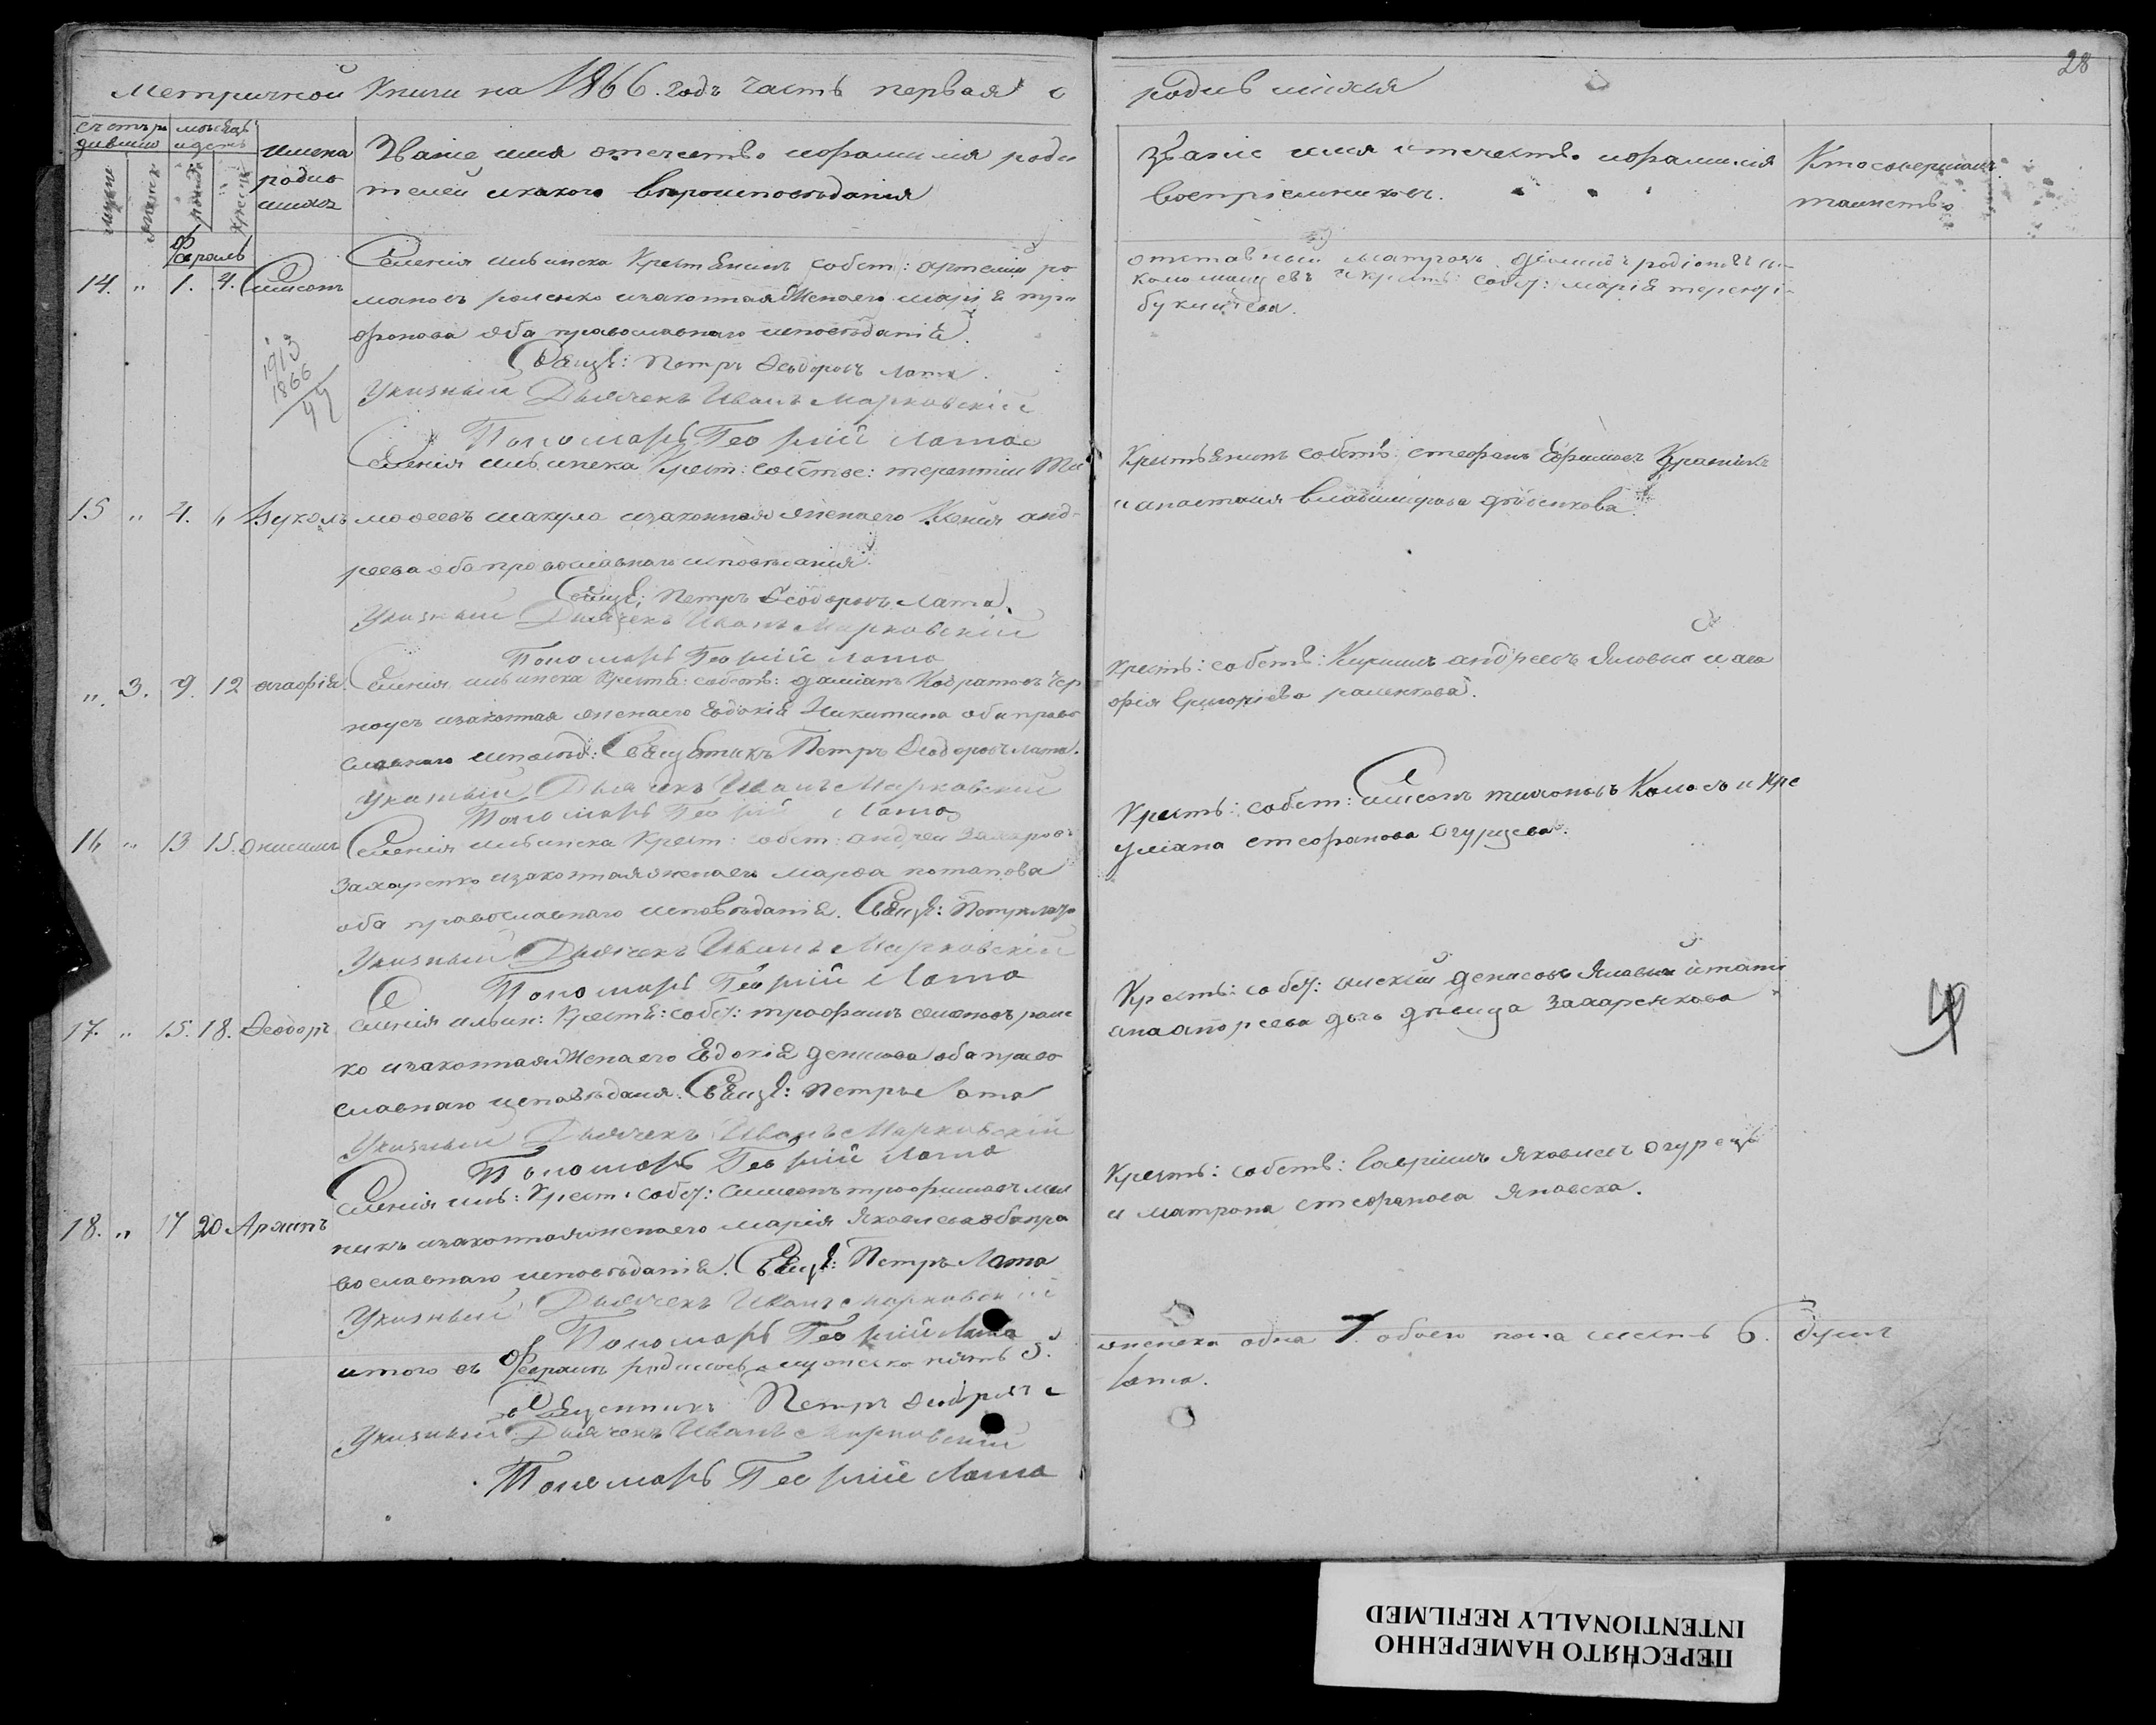 28
Метричной Книги на 1866. годъ часть первая о
родившихся
мѣсяцъ
и день
Имена
родив
шихъ
Званіе имя отечество и фамилія роди
телей и какого вѣроисповѣданія
Званіе имя отечество и фамилія
воспріемниковъ.
Кто совершалъ
таинство
Февраль
14. " 1. 4. Симеонъ
Селенія ильинска Крестьянинъ собст: артемій ро
мановъ роленко изаконная Жена его маріѧ три
фонова оба православнаго исповѣданіѧ.
Свящ: Петръ Ѳеодоровъ Лата.
Указный Дьячекъ Иванъ Марковскій
Пономарь Георгій Лата
отставный матрозъ родіоновъ
и крест: собст: маріѧ
1913
1866
47
15 " 4. " Вуколъ
Селенія ильинска Крест: собстве: терентій Ти
моѳеевъ шакула изаконная жена его Ксенія анд-
реева оба православнаго исповѣданія.
Свящ: Петръ Ѳеодоровъ Лата.
Указный Дьячекъ Иванъ Марковскій
Пономарь Георгій Лата
Крестьѧнинъ собств: стефанъ Ефимовъ
и анастасія владимирова
" 3. 9. 12 агафіѧ.
Селенія ильинска Креста: собств: даміанъ Кодратовъ Чер
ноусъ изаконная жена его Евдокіѧ Никитина оба право
славнаго исповѣд: Священникъ Петръ Ѳеодоровъ Лата.
Указный Дьячекъ Иванъ Марковскій
Пономарь Георгій Лата
Крестъ: собств: Кирилъ андреевъ Яловый и ага
фія Григоріева роленкова.
16 " 13 15. Онисимъ
Селенія ильинска Крест: собст: андрей Захаровъ
Захаренко изаконная жена его марѳа потапова
оба православнаго исповѣданіѧ. Свящ: Петръ Лата
Указный Дьячекъ Иванъ Марковскій
Пономарь Георгій Лата
Крестъ: собст: Симеонъ тимоновъ Колосъ и
уліана стефанова Огурцева.
17. " 15. 18. Ѳеодоръ
Селенія ильин: Креста: собст: трофимъ семеновъ роле
ко изаконная Жена его Евдокіѧ денисова оба право
славнаго исповѣданія. Свящ: Петръ Лата
Указный Дьячекъ Иванъ Марковскій
Пономарь Георгій Лата
Крестъ: собст: алексѣй денисовъ Яловый и тати
ана андреева дочь дѣвица Захаренкова
18. " 17 20 Архипъ
Селенія иль: Крест: собст: Симеонъ трофимовъ мел
никъ изаконная жена его марія Яковлева оба пра
вославнаго исповѣданіѧ. Свящ: Петръ Лата
Указный Дьячекъ Иванъ Марковскій
Пономарь Георгій Лата
Крестъ: собств: Гавріилъ Яковлевъ Огурецъ
и матрона стефанова Яновска.
итого въ Февралѣ родилось мужеска пять 5.
женска одна 1. обоего пола шесть 6. душъ
Священникъ Петръ Ѳеодоровъ
Лата.
Указный Дьячекъ Иванъ Марковскій
Пономарь Георгій Лата
ПЕРЕСНЯТО НАМЕРЕННО
INTENTIONALLY REFILMED